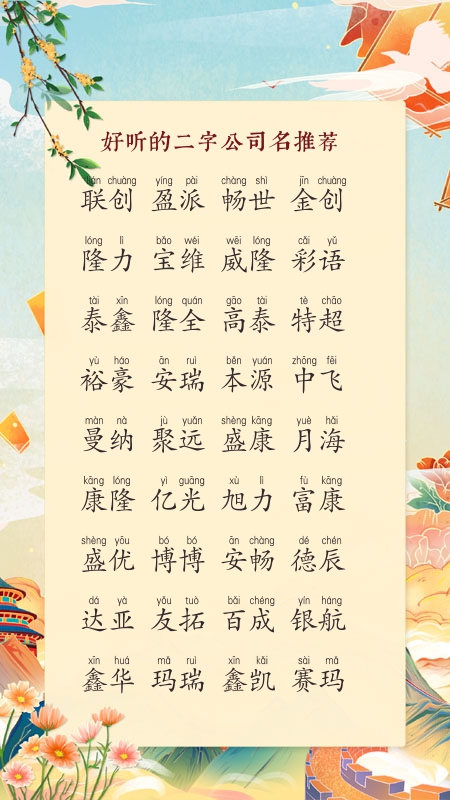 好听的二字公司名推荐
lián chuàng yíng pài chàng shì jīn chuàng
联创 盈派 畅世 金创
lóng lì bǎo wéi wēi lóng cǎi yǔ
隆力 宝维 威隆 彩语
tài xīn lóng quán gāo tài tè chāo
泰鑫 隆全 高泰 特超
yù háo ān ruì běn yuán zhōng fēi
裕豪 安瑞 本源 中飞
màn nà jù yuǎn shèng kāng yuè hǎi
曼纳 聚远 盛康 月海
kāng lóng yì guāng xù lì fù kāng
康隆 亿光 旭力 富康
shèng yōu bó bó ān chàng dé chén
盛优 博博 安畅 德辰
dá yà yǒu tuò bǎi chéng yín háng
达亚 友拓 百成 银航
xīn huá mǎ ruì xīn kǎi sài mǎ
鑫华 玛瑞 鑫凯 赛玛